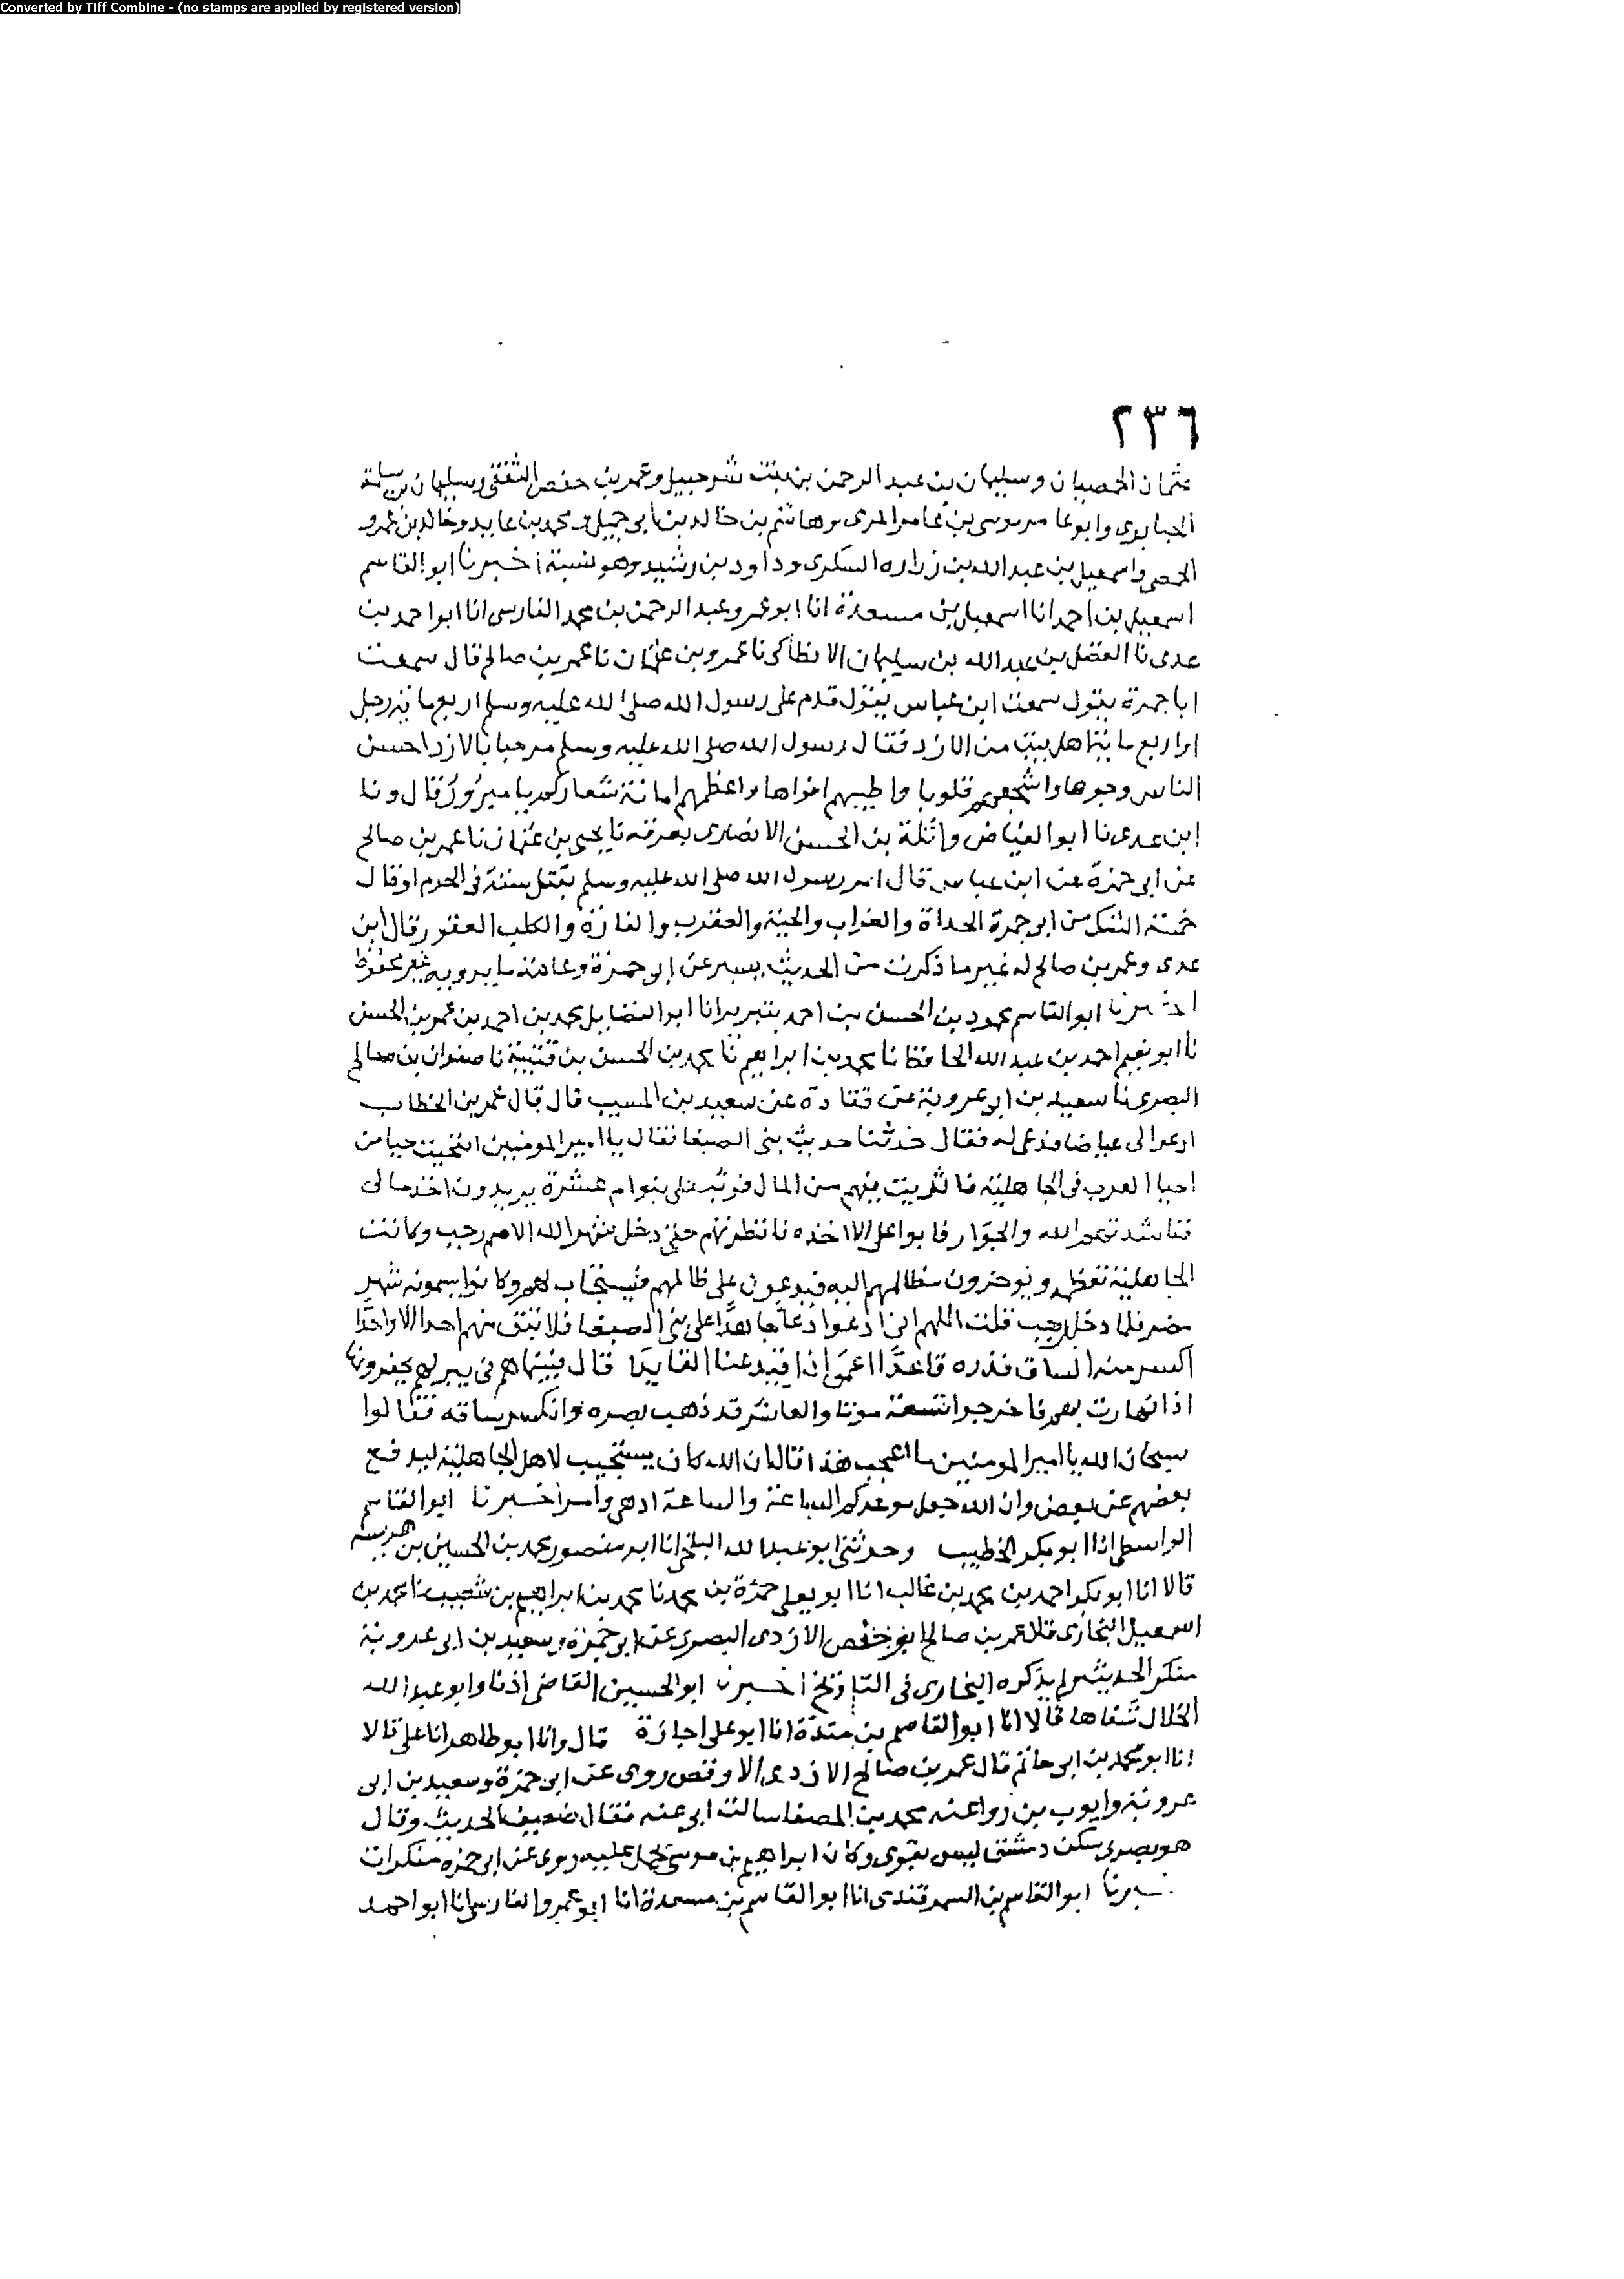 Converted by Tiff Combine - (no stamps are applied by registered version)
٢٣٦
عثمان الحمصيان وسليمان بن عبد الرحمن بن بنت شرحبيل وعمر بن حفص الثقفي وسليمان بن سلمة
الخبايري وابو عامر موسى بن عامر المري وهاشم بن خالد بن ابي جميل ومحمد بن عايد وخالد بن عمرو
الحمصي واسمعيل بن عبد الله بن زراره السكري وداود بن رشيد وهو نسبة اخبرنا ابو القاسم
اسمعيل بن احمد انا اسمعيل بن مسعدة انا ابو عمرو عبد الرحمن بن محمد الفارسي انا ابو احمد بن
عدي نا الفضل بن عبد الله بن سليمان الانطاكي نا عمرو بن عثمان نا عمر بن صالح قال سمعت
ابا جمرة يقول سمعت ابن عباس يقول قدم على رسول الله صلى الله عليه وسلم اربع ماية رجل
او اربع ماية اهل بيت من الازد فقال رسول الله صلى الله عليه وسلم مرحبا بالازد احسن
الناس وجوها واشجعهم قلوبا واطيبهم افواها واعظمهم امانة شعاركم يا مبرور قال ونا
ابن عدي نا ابو الفياض واثلة بن الحسن الانصاري بعرفه نا يحيى بن عثمان نا عمر بن صالح
عن ابي حمزة عن ابن عباس قال امر رسول الله صلى الله عليه وسلم بقتل ستة في الحرم او قال
خمسة الشك من ابو جمرة الحداة والغراب والحية والعقرب والفارة والكلب العقور قال ابن
عدي وعمر بن صالح له غير ما ذكرت من الحديث يسير عن ابي حمزة وعامة ما يرويه غير محفوظ
اخبرنا ابو القاسم محمود بن الحسن بن احمد بتبريز انا ابو الفضايل محمد بن احمد بن عمر بن الحسن
نا ابو نعيم احمد بن عبد الله الحافظ نا محمد بن ابراهيم نا محمد بن الحسن بن قتيبة نا صفوان بن صالح
البصري نا سعيد بن ابي عروبة عن قتادة عن سعيد بن المسيب قال قال عمر بن الخطاب
ادعوا لي عياضا فدعي له فقال حدثنا حديث بني الصبغا فقال يا امير المومنين انتجيت حيا من
احيا العرب في الجاهلية فاثريت منهم من المال فوثب علي بنو ام عشرة يريدون اخذ مالي
فناشدتهم الله والجوار فابوا علي الا اخذه فانتظرتهم حتى دخل شهر الله الاصم رجب وكانت
الجاهلية تعظمه ويوخرون مظالمهم اليه فيدعون على ظالمهم فيستجاب لهم وكانوا يسمونه شهر
مضر فلما دخل رجب قلت اللهم اني ادعوا دعا جاهدا على بني الصبغا فلا تبق منهم احدا الا واحدا
اكسر منه الساق فذره قاعدا اعمى اذا قيد عنا القايد قال فبينما هم في بير لهم يحفرونها
اذ انهارت بهم فاخرجوا تسعة موتا والعاشر قد ذهب بصره وانكسر ساقه فقالوا
سبحان الله يا امير المومنين ما اعجب هذا قال ان الله كان يستجيب لاهل الجاهلية ليدفع
بعضهم عن بعض وان الله جعل موعدكم الساعة والساعة ادهى وامر اخبرنا ابو القاسم
الواسطي انا ابو بكر الخطيب وحدثني ابو عبد الله البلخي انا ابو منصور محمد بن الحسين بن هريسه
قالا انا ابو بكر احمد بن محمد بن غالب انا ابو يعلى حمزة بن محمد نا محمد بن ابراهيم بن شعيب نا محمد بن
اسمعيل البخاري قال عمر بن صالح ابو حفص الازدي البصري عن ابي حمزة وسعيد بن ابي عروبة
منكر الحديث لم يذكره البخاري في التاريخ اخبرنا ابو الحسين القاضي اذنا وابو عبد الله
الخلال شفاها قالا انا ابو القاسم بن مندة انا ابو علي اجازة قال وانا ابو طاهر انا علي قالا
انا ابو محمد بن ابي حاتم قال عمر بن صالح الازدي الاوقص روى عن ابي حمزة وسعيد بن ابي
عروبة وايوب بن روا عنه محمد بن المصفا سالت ابي عنه فقال ضعيف الحديث وقال
هو بصري سكن دمشق ليس بقوي وكان ابراهيم بن موسى يحمل عليه روى عن ابي حمزه منكرات
ابو القاسم بن السمرقندي انا ابو القاسم بن مسعدة انا ابو عمرو الفارسي انا ابو احمد